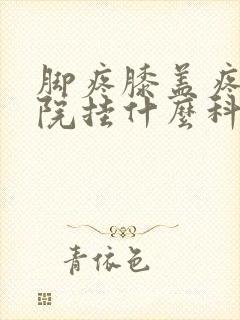 脚疼膝盖疼
院挂什麼科
青依色